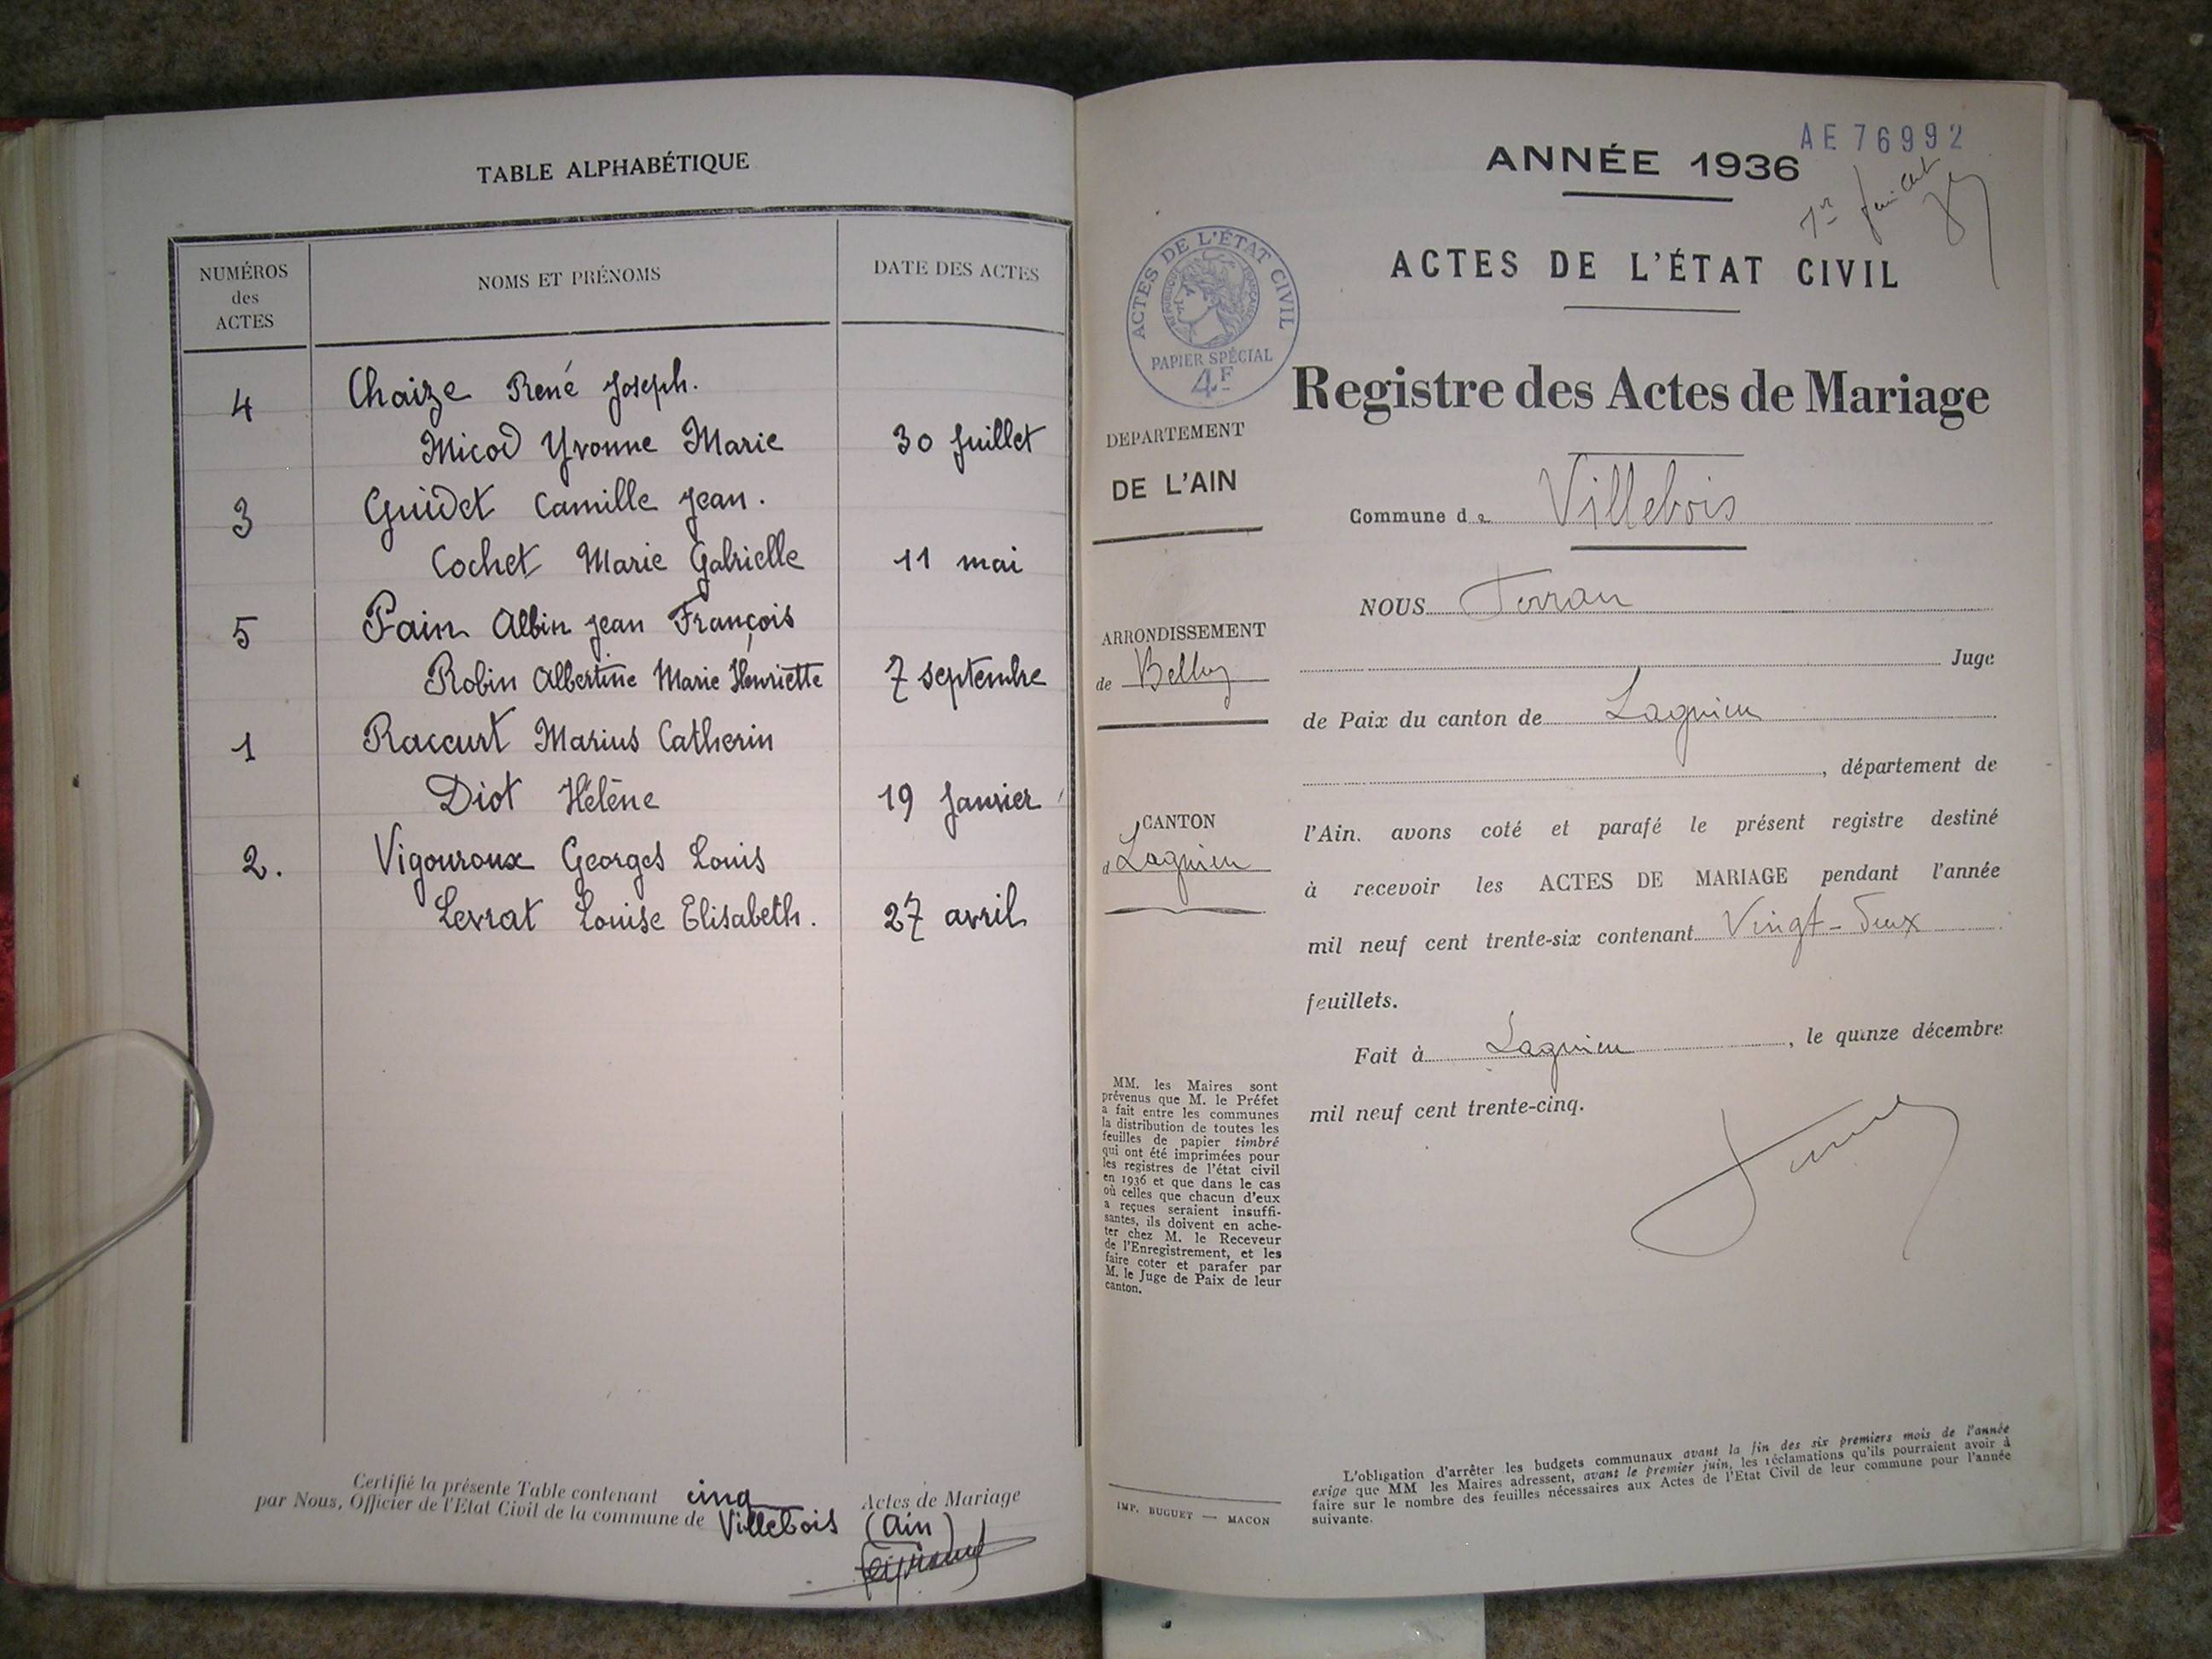 TABLE ALPHABÉTIQUE
NUMÉROS
des
ACTES
NOMS ET PRÉNOMS
DATE DES ACTES
4 Chaize René Joseph.
Micod Yvonne Marie 30 Juillet
3 Guidet Camille Jean.
Cochet Marie Gabrielle 11 mai
5 Pain Albin Jean François
Robin Albertine Marie Henriette 7 septembre
1 Raccurt Marius Catherin
Diot Hélène 19 Janvier
2. Vigouroux Georges Louis
Levrat Louise Elisabeth. 27 avril
Certifié la présente Table contenant cinq Actes de Mariage
par Nous, Officier de l'Etat Civil de la commune de Villebois (Ain)
AE 76992
ANNÉE 1936
ACTES DE L'ÉTAT CIVIL
ACTES DE L'ÉTAT CIVIL
RÉPUBLIQUE FRANÇAISE
PAPIER SPÉCIAL
4F
Registre des Actes de Mariage
DEPARTEMENT
DE L'AIN
ARRONDISSEMENT
de Belley
CANTON
d Lagnieu
MM. les Maires sont
prévenus que M. le Préfet
a fait entre les communes
la distribution de toutes les
feuilles de papier timbré
qui ont été imprimées pour
les registres de l'état civil
en 1936 et que dans le cas
où celles que chacun d'eux
a reçues seraient insuffi-
santes, ils doivent en ache-
ter chez M. le Receveur
de l'Enregistrement, et les
faire coter et parafer par
M. le Juge de Paix de leur
canton.
IMP. BUGUET — MACON
Commune de Villebois
NOUS Ferran
Juge
de Paix du canton de Lagnieu
, département de
l'Ain. avons coté et parafé le présent registre destiné
à recevoir les ACTES DE MARIAGE pendant l'année
mil neuf cent trente-six contenant Vingt-deux
feuillets.
Fait à Lagnieu, le quinze décembre
mil neuf cent trente-cinq.
L'obligation d'arrêter les budgets communaux avant la fin des six premiers mois de l'année
exige que MM les Maires adressent, avant le premier juin, les réclamations qu'ils pourraient avoir à
faire sur le nombre des feuilles nécessaires aux Actes de l'Etat Civil de leur commune pour l'année
suivante.